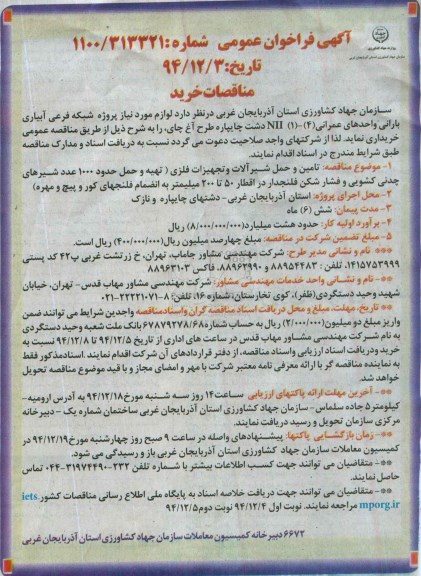 آگهی فراخوان عمومی شماره: ۱۱۰۰/۳۱۳۳۲۱
تاریخ: ۹۴/۱۲/۳
مناقصات خرید
سازمان جهاد کشاورزی استان آذربایجان غربی درنظر دارد لوازم مورد نیاز پروژه شبکه فرعی آبیاری
بارانی واحدهای عمرانی(۴)-(۱) NII دشت چایپاره طرح آغ چای، را به شرح ذیل از طریق مناقصه عمومی
خریداری نماید. لذا از شرکتهای واجد صلاحیت دعوت می گردد نسبت به دریافت اسناد و مدارک مناقصه
طبق شرایط مندرج در اسناد اقدام نمایند.
۱- موضوع مناقصه: تامین و حمل شیرآلات و تجهیزات فلزی ( تهیه و حمل حدود ۱۰۰۰ عدد شیرهای
چدنی کشویی و فشار شکن فلنجدار در اقطار ۵۰ تا ۲۰۰ میلیمتر به انضمام فلنجهای کور و پیچ و مهره)
۲- محل اجرای پروژه: استان آذربایجان غربی- دشتهای چایپاره و نازک
۳- مدت پیمان: شش (۶) ماه
۴- برآورد اولیه کار: حدود هشت میلیارد(۸/۰۰۰/۰۰۰/۰۰۰) ریال
۵- مبلغ تضمین شرکت در مناقصه: مبلغ چهارصد میلیون ریال(۴۰۰/۰۰۰/۰۰۰) ریال است.
*** نام و نشانی مدیر طرح: شرکت مهندسی مشاور جاماب، تهران، خ زرتشت غربی پ۴۲ کد پستی
۱۴۱۵۷۵۳۹۹۹، تلفن: ۸۸۹۵۴۴۸۳ و ۸۸۹۶۳۹۹۰، فاکس ۸۸۹۶۳۱۰۳
**- نام و نشانی واحد خدمات مهندسی مشاور: شرکت مهندسی مشاور مهاب قدس- تهران، خیابان
شهید وحید دستگردی(ظفر)، کوی تخارستان، شماره ۱۶، تلفن: ۸-۲۲۲۲۱۰۷۱-۰۲۱
**- تاریخ، مهلت، مبلغ و محل دریافت اسناد مناقصه گران واسنادمناقصه واجدین شرایط می توانند ضمن
واریز مبلغ دو میلیون(۲/۰۰۰/۰۰۰) ریال به حساب شماره۶۷۸۷۹۲۷۸/۶۸ بانک ملت شعبه وحید دستگردی
به نام شرکت مهندسی مشاور مهاب قدس در ساعت های اداری از تاریخ ۹۴/۱۲/۵ تا ۹۴/۱۲/۸ نسبت به
خرید ودریافت اسناد ارزیابی واسناد مناقصه، از دفتر قراردادهای آن شرکت اقدام نمایند. اسناد مذکور فقط
به نماینده مناقصه گر با ارائه معرفی نامه معتبر شرکت با مهر و امضای مجاز و با قید موضوع مناقصه تحویل
خواهد شد.
**- آخرین مهلت ارائه پاکتهای ارزیابی ساعت۱۴ روز سه شنبه مورخ ۹۴/۱۲/۱۸ به آدرس ارومیه-
کیلومتر ۵ جاده سلماس- سازمان جهاد کشاورزی استان آذربایجان غربی ساختمان شماره یک - دبیرخانه
مرکزی سازمان تحویل و رسید دریافت نمایند.
**- زمان بازگشایی پاکتها: پیشنهادهای واصله در ساعت ۹ صبح روز چهارشنبه مورخ ۹۴/۱۲/۱۹ در
کمیسیون معاملات سازمان جهاد کشاورزی استان آذربایجان غربی باز و رسیدگی می شود.
**- متقاضیان می توانند جهت کسب اطلاعات بیشتر با شماره تلفن ۲۳۲-۳۱۹۷۴۴۹۰-۰۴۴ تماس
حاصل نمایند.
**- متقاضیان می توانند جهت دریافت خلاصه اسناد به پایگاه ملی اطلاع رسانی مناقصات کشور iets.
mporg.ir مراجعه نمایند. نوبت اول ۹۴/۱۲/۴ نوبت دوم ۹۴/۱۲/۵
۶۶۷۲ دبیرخانه کمیسیون معاملات سازمان جهاد کشاورزی استان آذربایجان غربی